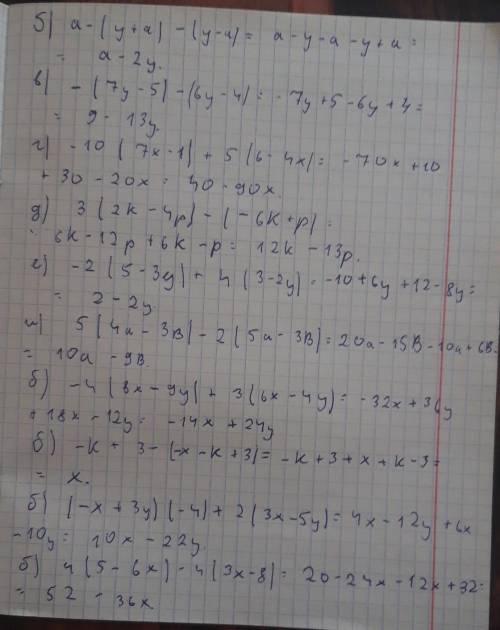 б) a - (y + a) - (y - a) = a - y - a - y + a =
= a - 2y.
в) - (7y - 5) - (6y - 4) = - 7y + 5 - 6y + 4 =
= 9 - 13y.
г) -10 (7x - 1) + 5 (6 - 4x) = -70x + 10
+ 30 - 20x = 40 - 90x.
д) 3 (2k - 4p) - (-6k + p) =
= 6k - 12p + 6k - p = 12k - 13p.
е) -2 (5 - 3y) + 4 (3 - 2y) = -10 + 6y + 12 - 8y =
= 2 - 2y.
а) 5 (4a - 3в) - 2 (5a - 3в) = 20a - 15в - 10a + 6в
= 10a - 9в.
б) -4 (8x - 9y) + 3 (6x - 4y) = -32x + 36y
+ 18x - 12y = -14x + 24y
б) -k + 3 - (-x - k + 3) = -k + 3 + x + k - 3 =
= x.
б) (-x + 3y) (-4) + 2 (3x - 5y) = 4x - 12y + 6x
- 10y = 10x - 22y.
б) 4 (5 - 6x) - 4 (3x - 8) = 20 - 24x - 12x + 32 =
= 52 - 36x